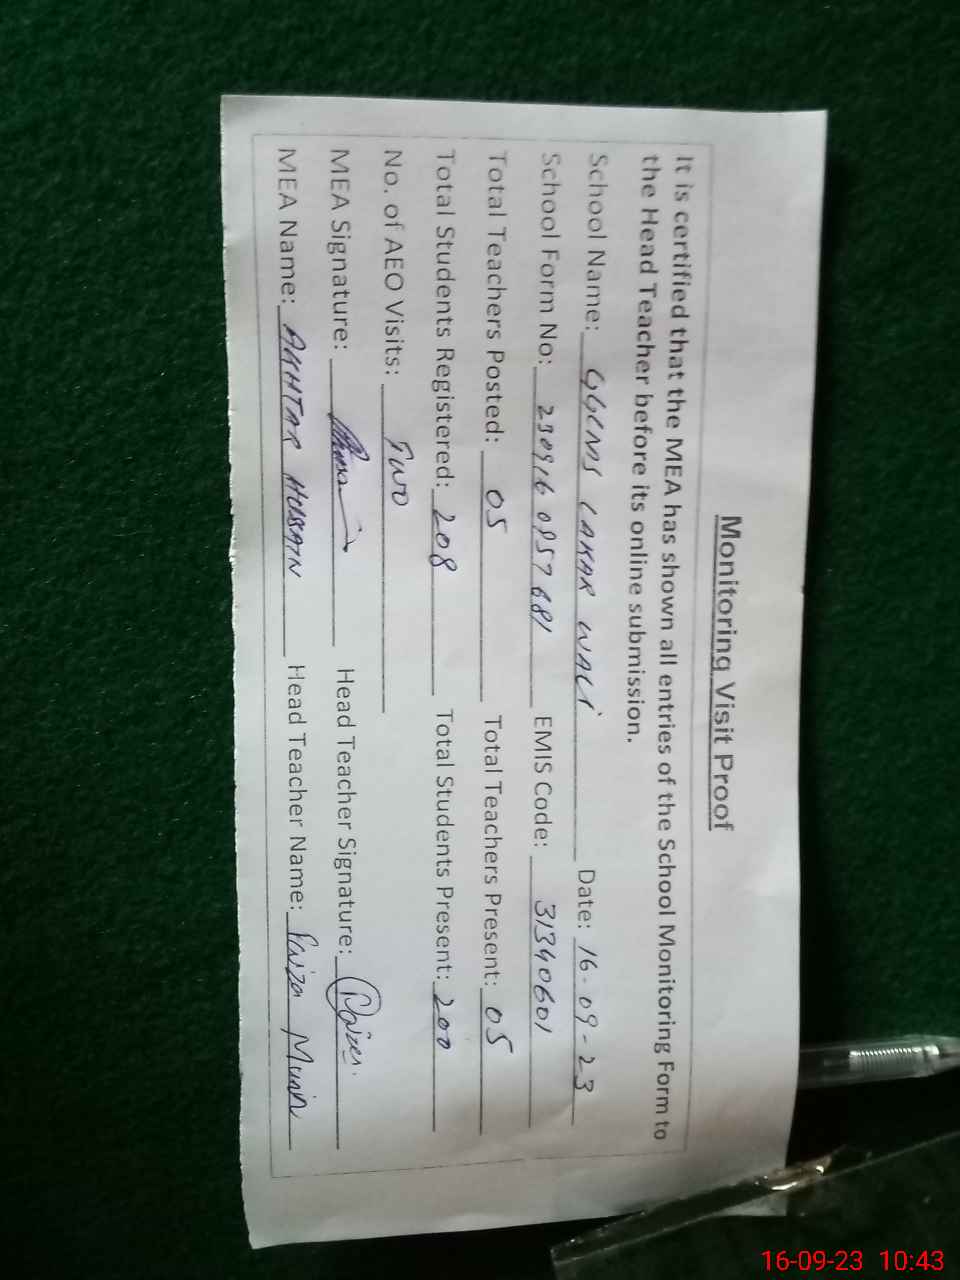 Monitoring Visit Proof
It is certified that the MEA has shown all entries of the School Monitoring Form to
the Head Teacher before its online submission.
School Name: GGCMS LAKAR WALI Date: 16-09-23
School Form No: 2309160957681 EMIS Code: 31340601
Total Teachers Posted: 05 Total Teachers Present: 05
Total Students Registered: 208 Total Students Present: 200
No. of AEO Visits: TWO
MEA Signature: Head Teacher Signature:
MEA Name: AKHTAR HUSSAIN Head Teacher Name: Faiza Munir
16-09-23 10:43